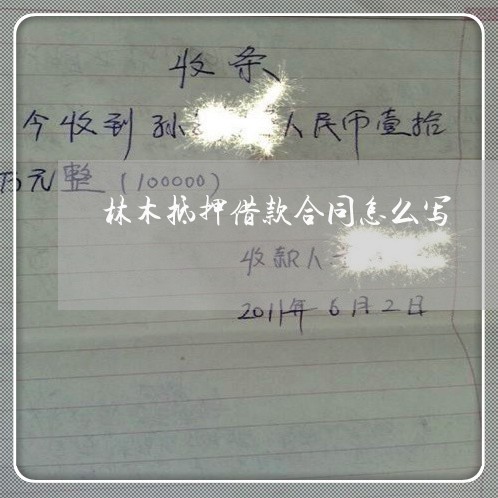 收条
今收到孙 人民币壹拾
万元整(100000)
林木抵押借款合同怎么写
收款人
2011年6月2日